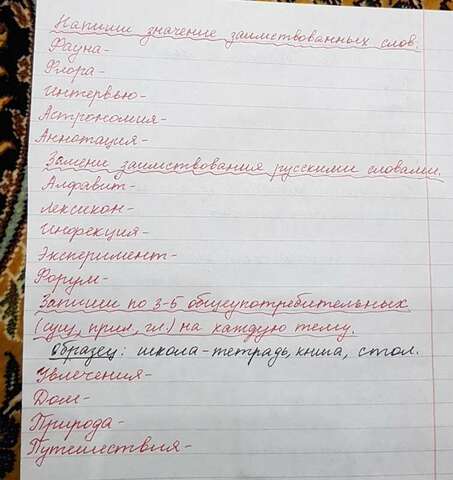 Напиши значение заимствованных слов.
Фауна-
Флора-
Интервью-
Астрономия-
Аннотация-
Замени заимствования русскими словами.
Алфавит-
Лексикон-
Инфекция-
Эксперимент-
Форум-
Запиши по 3-5 общеупотребительных
(сущ, прил, гл.) на каждую тему.
Образец: школа-тетрадь, книга, стол.
Увлечения-
Дом-
Природа-
Путешествия-